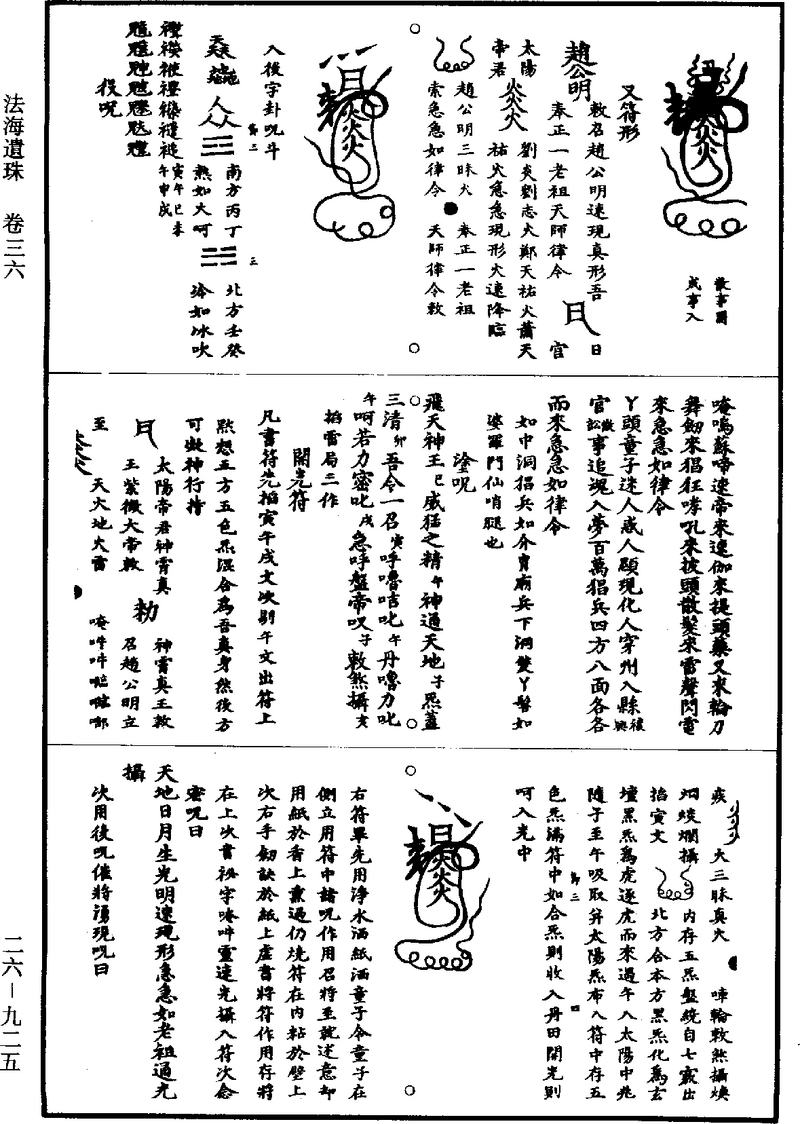 法海遺珠 卷三六
二六—九二五
散事圖
成事入
又符形
趙公明
敕召趙公明速現真形吾
奉正一老祖天師律令
日
日
官
太陽
帝君
炎炎炎
劉炎劉志火鄭天祐火蕭天
祐火急急現形火速降臨
趙公明三昧火 奉正一老祖
索急急如律令 天師律令敕
入後字卦呪斗
南方丙丁
熱如火呵
寅午巳未
午申戌
北方壬癸
冷如冰吹
役呪
唵嗚蘇啼速帝來速伽來提頭藥叉來輪刀
舞劒來猖狂哮吼來披頭散髮來雷聲閃電
來急急如律令
丫頭童子迷人惑人顯現化人穿州入縣後與
官散訟事追魂入夢百萬猖兵四方八面各各
而來急急如律令
如中洞猖兵如介胄廟兵下洞雙丫髻如
婆羅門仙哨腿也
塗呪
飛天神王巳威猛之精午神通天地子炁蓋
三清卯吾令一召寅呼嚕咭叱午丹嚕力叱
午呵若力密叱戌急呼盤帝呪子敕煞攝亥
掐雷局二作
開光符
凡書符先掐寅午戌文次剔午文出符上
默想五方五色炁混合為吾真身然後方
可敕神行持
日
太陽帝君神霄真
王紫微大帝敕
勑
神霄真王敕
召趙公明立
至
天火地火雷
唵吽吽
疾
火三昧真火
㖶輪敕煞攝煥
烟燄爛攝 內存五炁盤繞自七竅出
掐寅文
北方合本方黑炁化為玄
壇黑炁為虎逐虎而來過午入太陽中兆
隨子至午吸取并太陽炁布入符中存五
色炁滿符中如合炁則收入丹田開光則
呵入光中
右符畢先用淨水洒紙洒童子令童子在
側立用符中諸呪作用召將至就述意却
用紙於香上熏過仍燒符在內粘於壁上
次右手劒訣於紙上虛書將符作用存將
在上次書祕字唵吽靈速光攝入符次念
密呪曰
天地日月生光明速現形急急如老祖通光
攝
次用後呪催將湧現呪曰